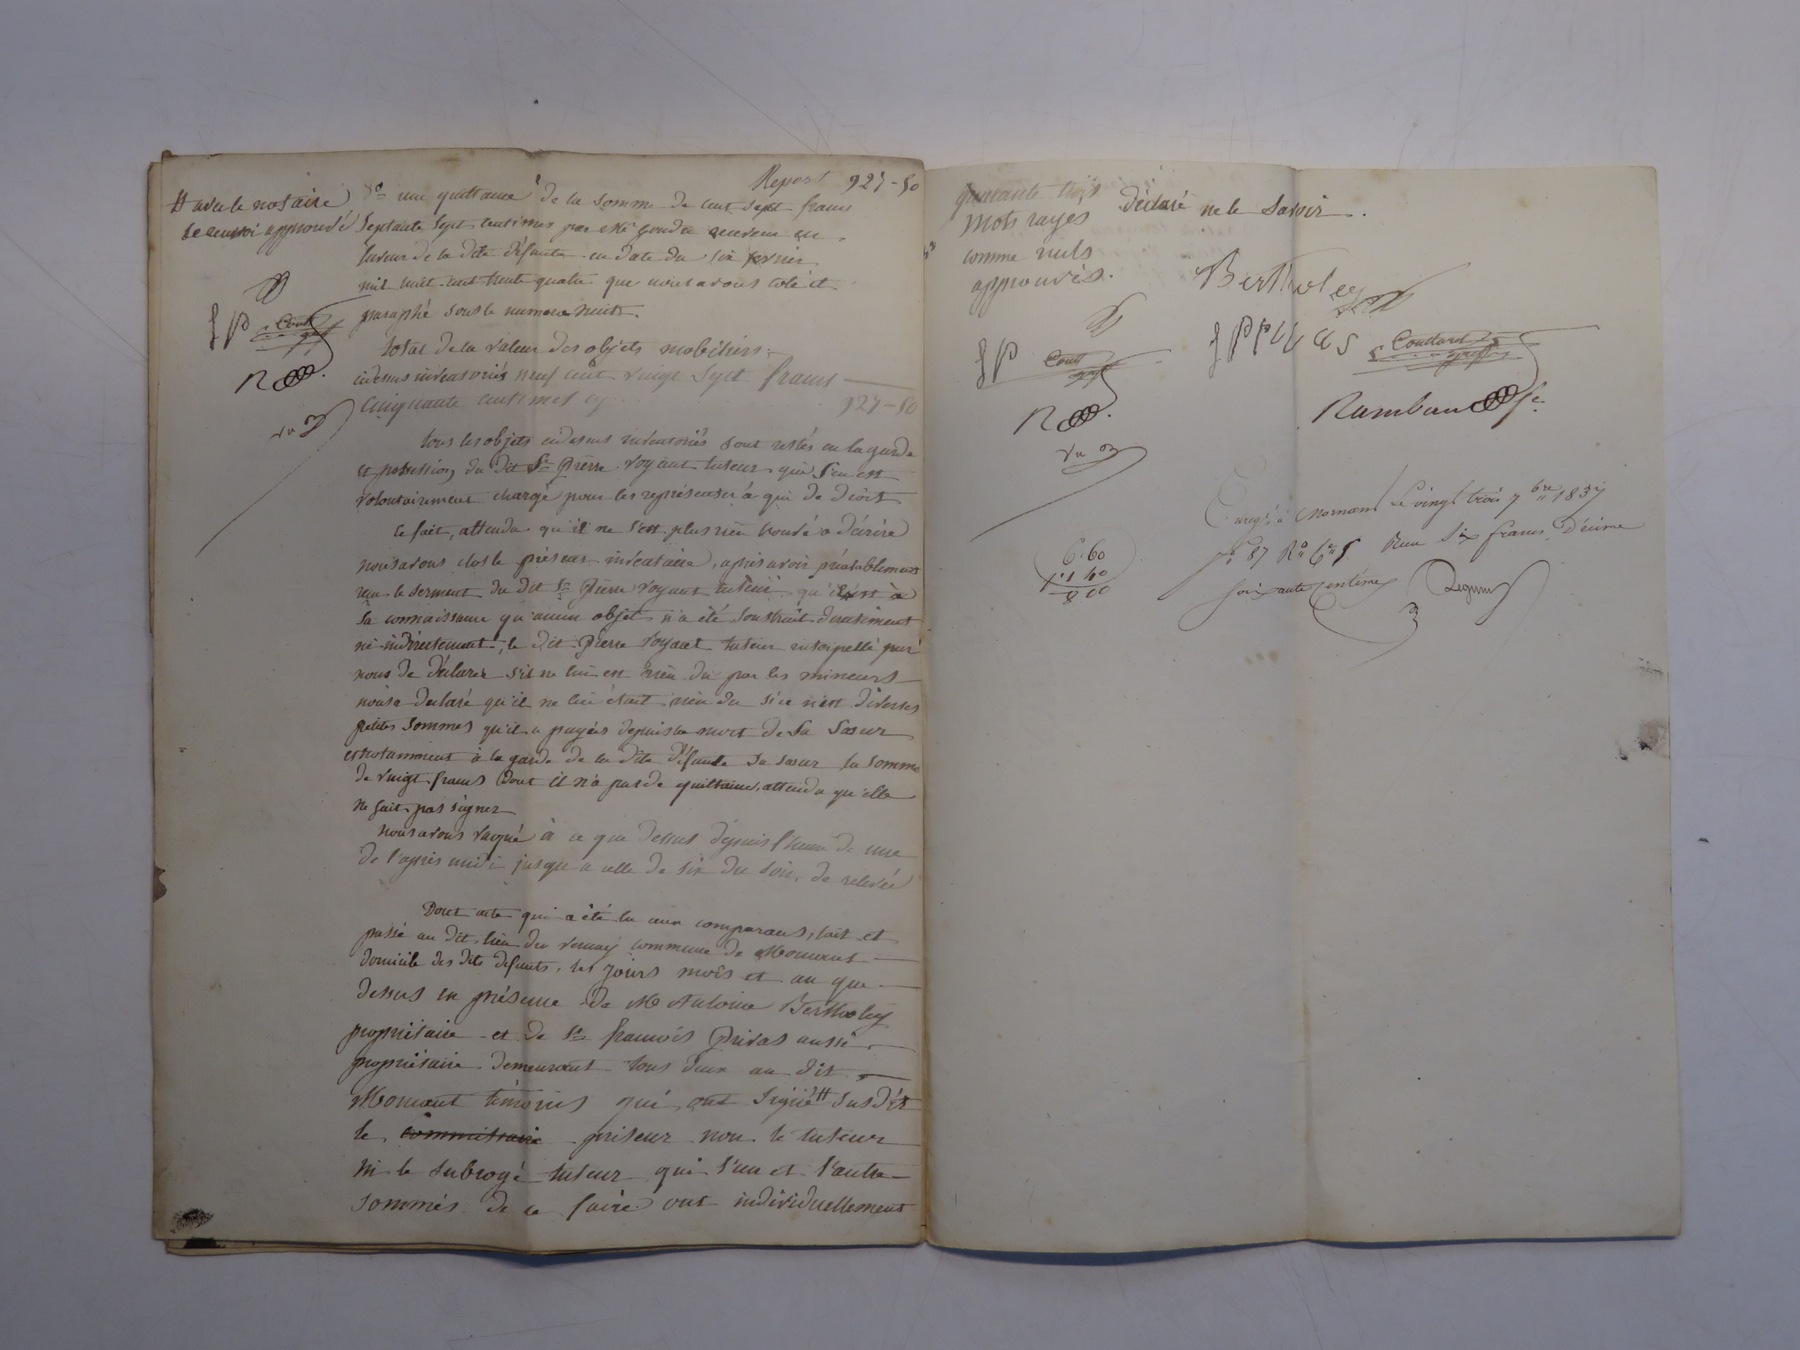 Report 927-50
# avec le notaire
le renvoi approuvé
8° une quittance de la somme de cent sept francs
septante sept centimes par Me
faveur de la dite défunte en date du six
mil huit cent trente quatre que nous avons coté et
paraphé sous le numero huit.
total de la valeur des objets mobiliers
cidessus inventoriés neuf cent vingt sept francs
cinquante centimes cy 927-50
tous les objets cidessus inventoriés sont restés en la garde
et possession du dit Sr pierre Voyant tuteur qui s'en est
volontairement chargé pour les représenter à qui de droit
Ce fait, attendu qu'il ne s'est plus rien trouvé à décrire
nous avons clos le présent inventaire, après avoir préalablement
reçu le serment du dit Sr pierre Voyant tuteur qu'il est à
sa connaissance qu'aucun objet n'a été soustrait directement
ni indirectement, le dit pierre Voyant tuteur interpellé par
nous de déclarer s'il ne lui est rien du par les mineurs
nous a declaré qu'il ne lui était rien du si ce n'est diverses
petites sommes qu'il a payées depuis la mort de sa sœur
et notamment à la garde de la dite défunte sa sœur la somme
de vingt francs dont il n'a pas de quittance, attendu qu'elle
ne sait pas signer
nous avons vaqué à ce que dessus depuis l'heure de une
de l'après midi jusqu'a celle de six du soir, de relevée
Dont acte qui a été lu aux comparans, fait et
passé au dit lieu du commune de Mornant
domicile des dits défunts, les jours mois et an que
dessus en présence de Me Antoine Bertholey
propriétaire et de Sr françois Privas aussi
propriétaire demeurant tous deux au dit
Mornant témoins qui ont signé # susdit
le commissaire priseur non le tuteur
ni le subrogé tuteur qui l'un et l'autre
sommés de ce faire ont individuellement
quarante trois
mots rayés
comme nuls
approuvés.
déclaré ne le savoir.
Bertholey
Coultard
Rambau
Enregé à Mornant le vingt trois 7bre 1837
fo 87 Ro Ce 5 Reçu six francs décime
soixante centimes
6.60
1.40
8.00